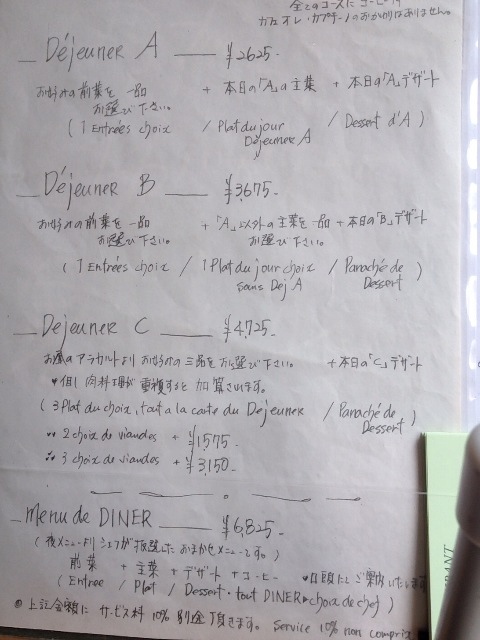 全てのコースにコーヒー付
カフェオレ・カプチーノのおかわりはありません。
Déjeuner A ¥2625-
お好みの前菜を一品 + 本日の「A」の主菜 + 本日の「A」デザート
お選び下さい。
( 1 Entrées choix / Plat du jour / Dessert d'A )
Déjeuner A
Déjeuner B ¥3,675-
お好みの前菜を一品 + 「A」以外の主菜を一品 + 本日の「B」デザート
お選び下さい。 お選び下さい。
( 1 Entrées choix / 1 Plat du jour choix / Panaché de )
sans Déj A Dessert
Déjeuner C ¥4,725-
お昼のアラカルトよりお好みの三品をお選び下さい。 + 本日の「C」デザート
但し肉料理が重複すると加算されます。
( 3 Plat du choix, tout a la carte du Déjeuner / Panaché de )
Dessert
2 choix de viandes + ¥1,575-
3 choix de viandes + ¥3,150-
Menu de DINER ¥6,825-
( 夜メニューよりシェフが抜選したおまかせメニューです。)
前菜 + 主菜 + デザート + コーヒー 口頭にてご案内いたします
( Entrée / Plat / Dessert・tout DINER choix de chef )
上記金額にサービス料10%別途頂きます。 Service 10% non compris